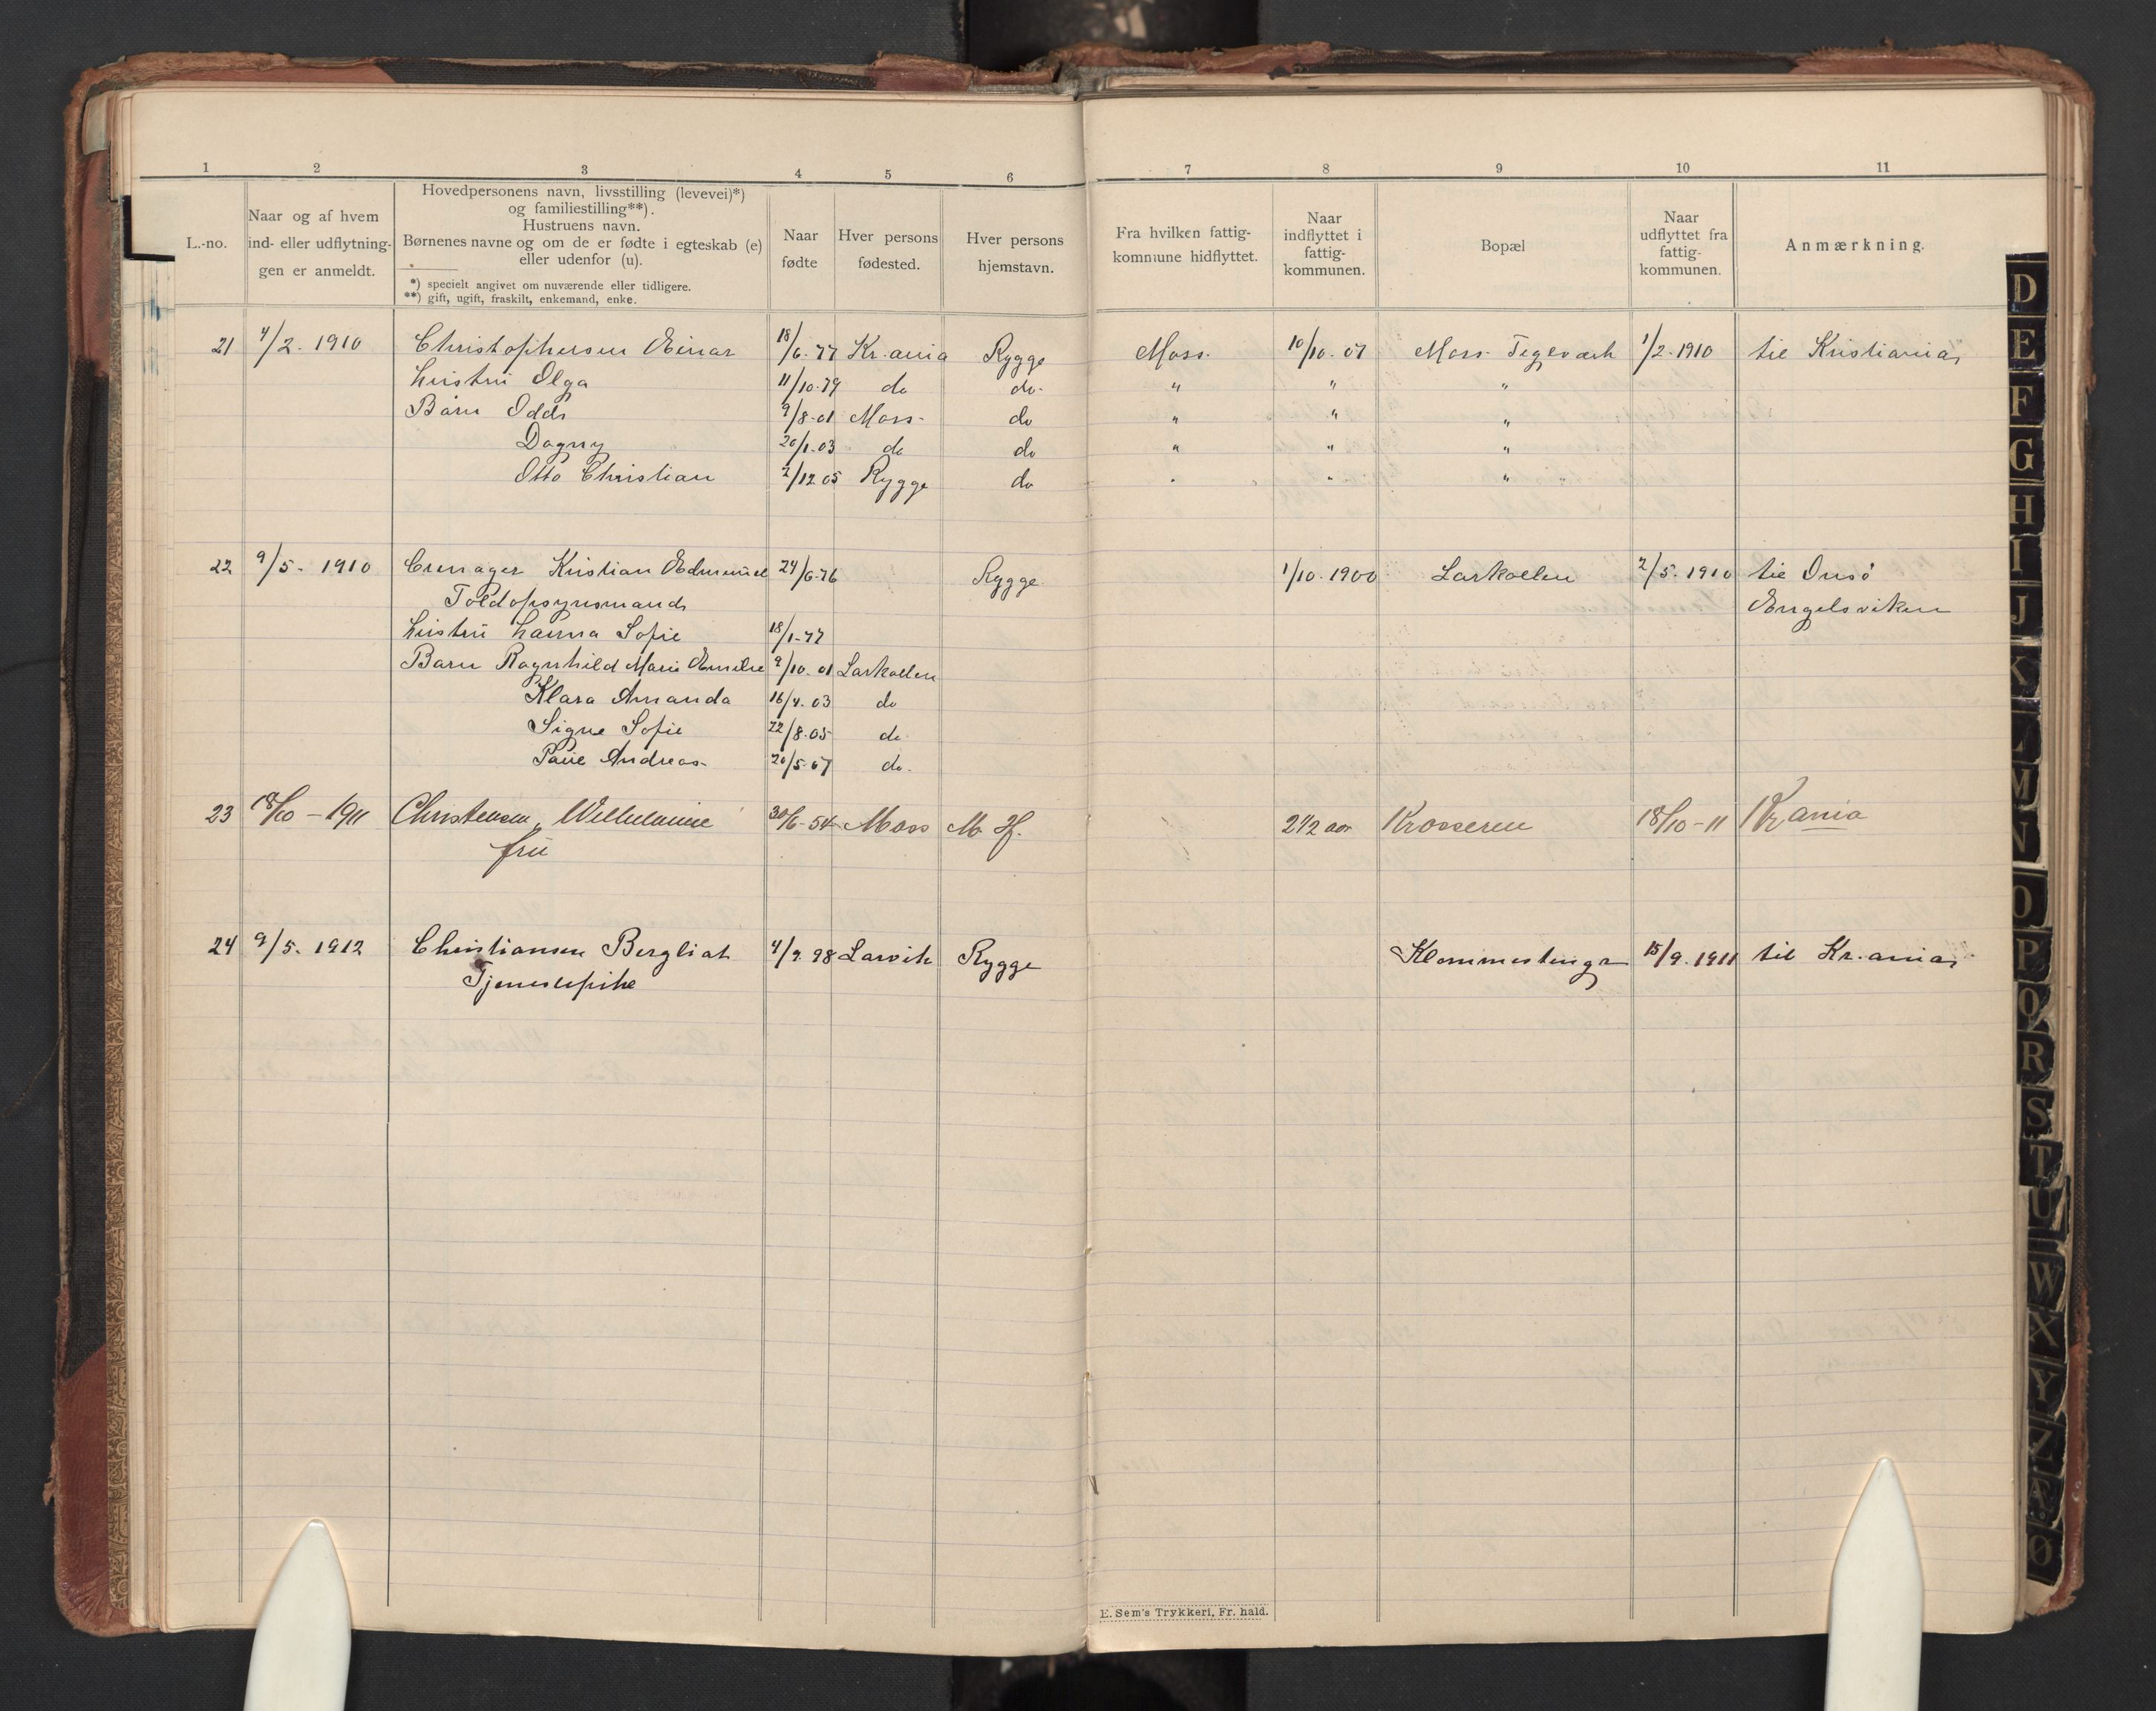 1 2 3 4 5 6 7 8 9 10 11
L.-no.
Naar og af hvem
ind- eller udflytnin-
gen er anmeldt.
Hovedpersonens navn, livsstilling (levevei)*)
og familiestilling**).
Hustruens navn.
Børnenes navne og om de er fødte i egteskab (e)
eller udenfor (u).
*) specielt angivet om nuværende eller tidligere.
**) gift, ugift, fraskilt, enkemand, enke.
Naar
fødte
Hver persons
fødested.
Hver persons
hjemstavn.
Fra hvilken fattig-
kommune hidflyttet.
Naar
indflyttet i
fattig-
kommunen.
Bopæl
Naar
udflyttet fra
fattig-
kommunen.
Anmærkning.
21 4/2. 1910 Christophersen Einar 18/6.77 Kr.ania Rygge Moss. 10/10.07 Moss Teglværk 1/2.1910 til Kristiania
Hustru Olga 11/10.79 do do. " " "
Barn Odd 9/8.01 Moss. do " " "
Dagny 20/1.03 do do " " "
Otto Christian 2/12.05 Rygge do " " "
22 9/5. 1910 Kristian Edmund 24/6.76 Rygge 1/10.1900 Larkollen 2/5.1910 til Onsö
Toldopsynsmand Engelsviken
Hustru Hanna Sofie 18/1-77
Barn Ragnhild Marie Emilie 9/10.01 Larkollen
Klara Amanda 16/4.03 do
Signe Sofie 22/8.05 do
Andreas 20/5.07 do.
23 18/10 - 1911 Christensen, Wilhelmine 30/6-54 Moss M. Hf. 2 1/2 aar Krosseren 18/10-11 Kr ania
fru
24 9/5. 1912 Christiansen Bergliot 4/9.98 Larvik Rygge 15/9.1911 til Kr.ania
Tjenestepike
E. Sem's Trykkeri, Fr. hald.
D
E
F
G
H
I
J
K
L
M
N
O
P
Q
R
S
T
U
W
X
Y
Z
Æ
Ø